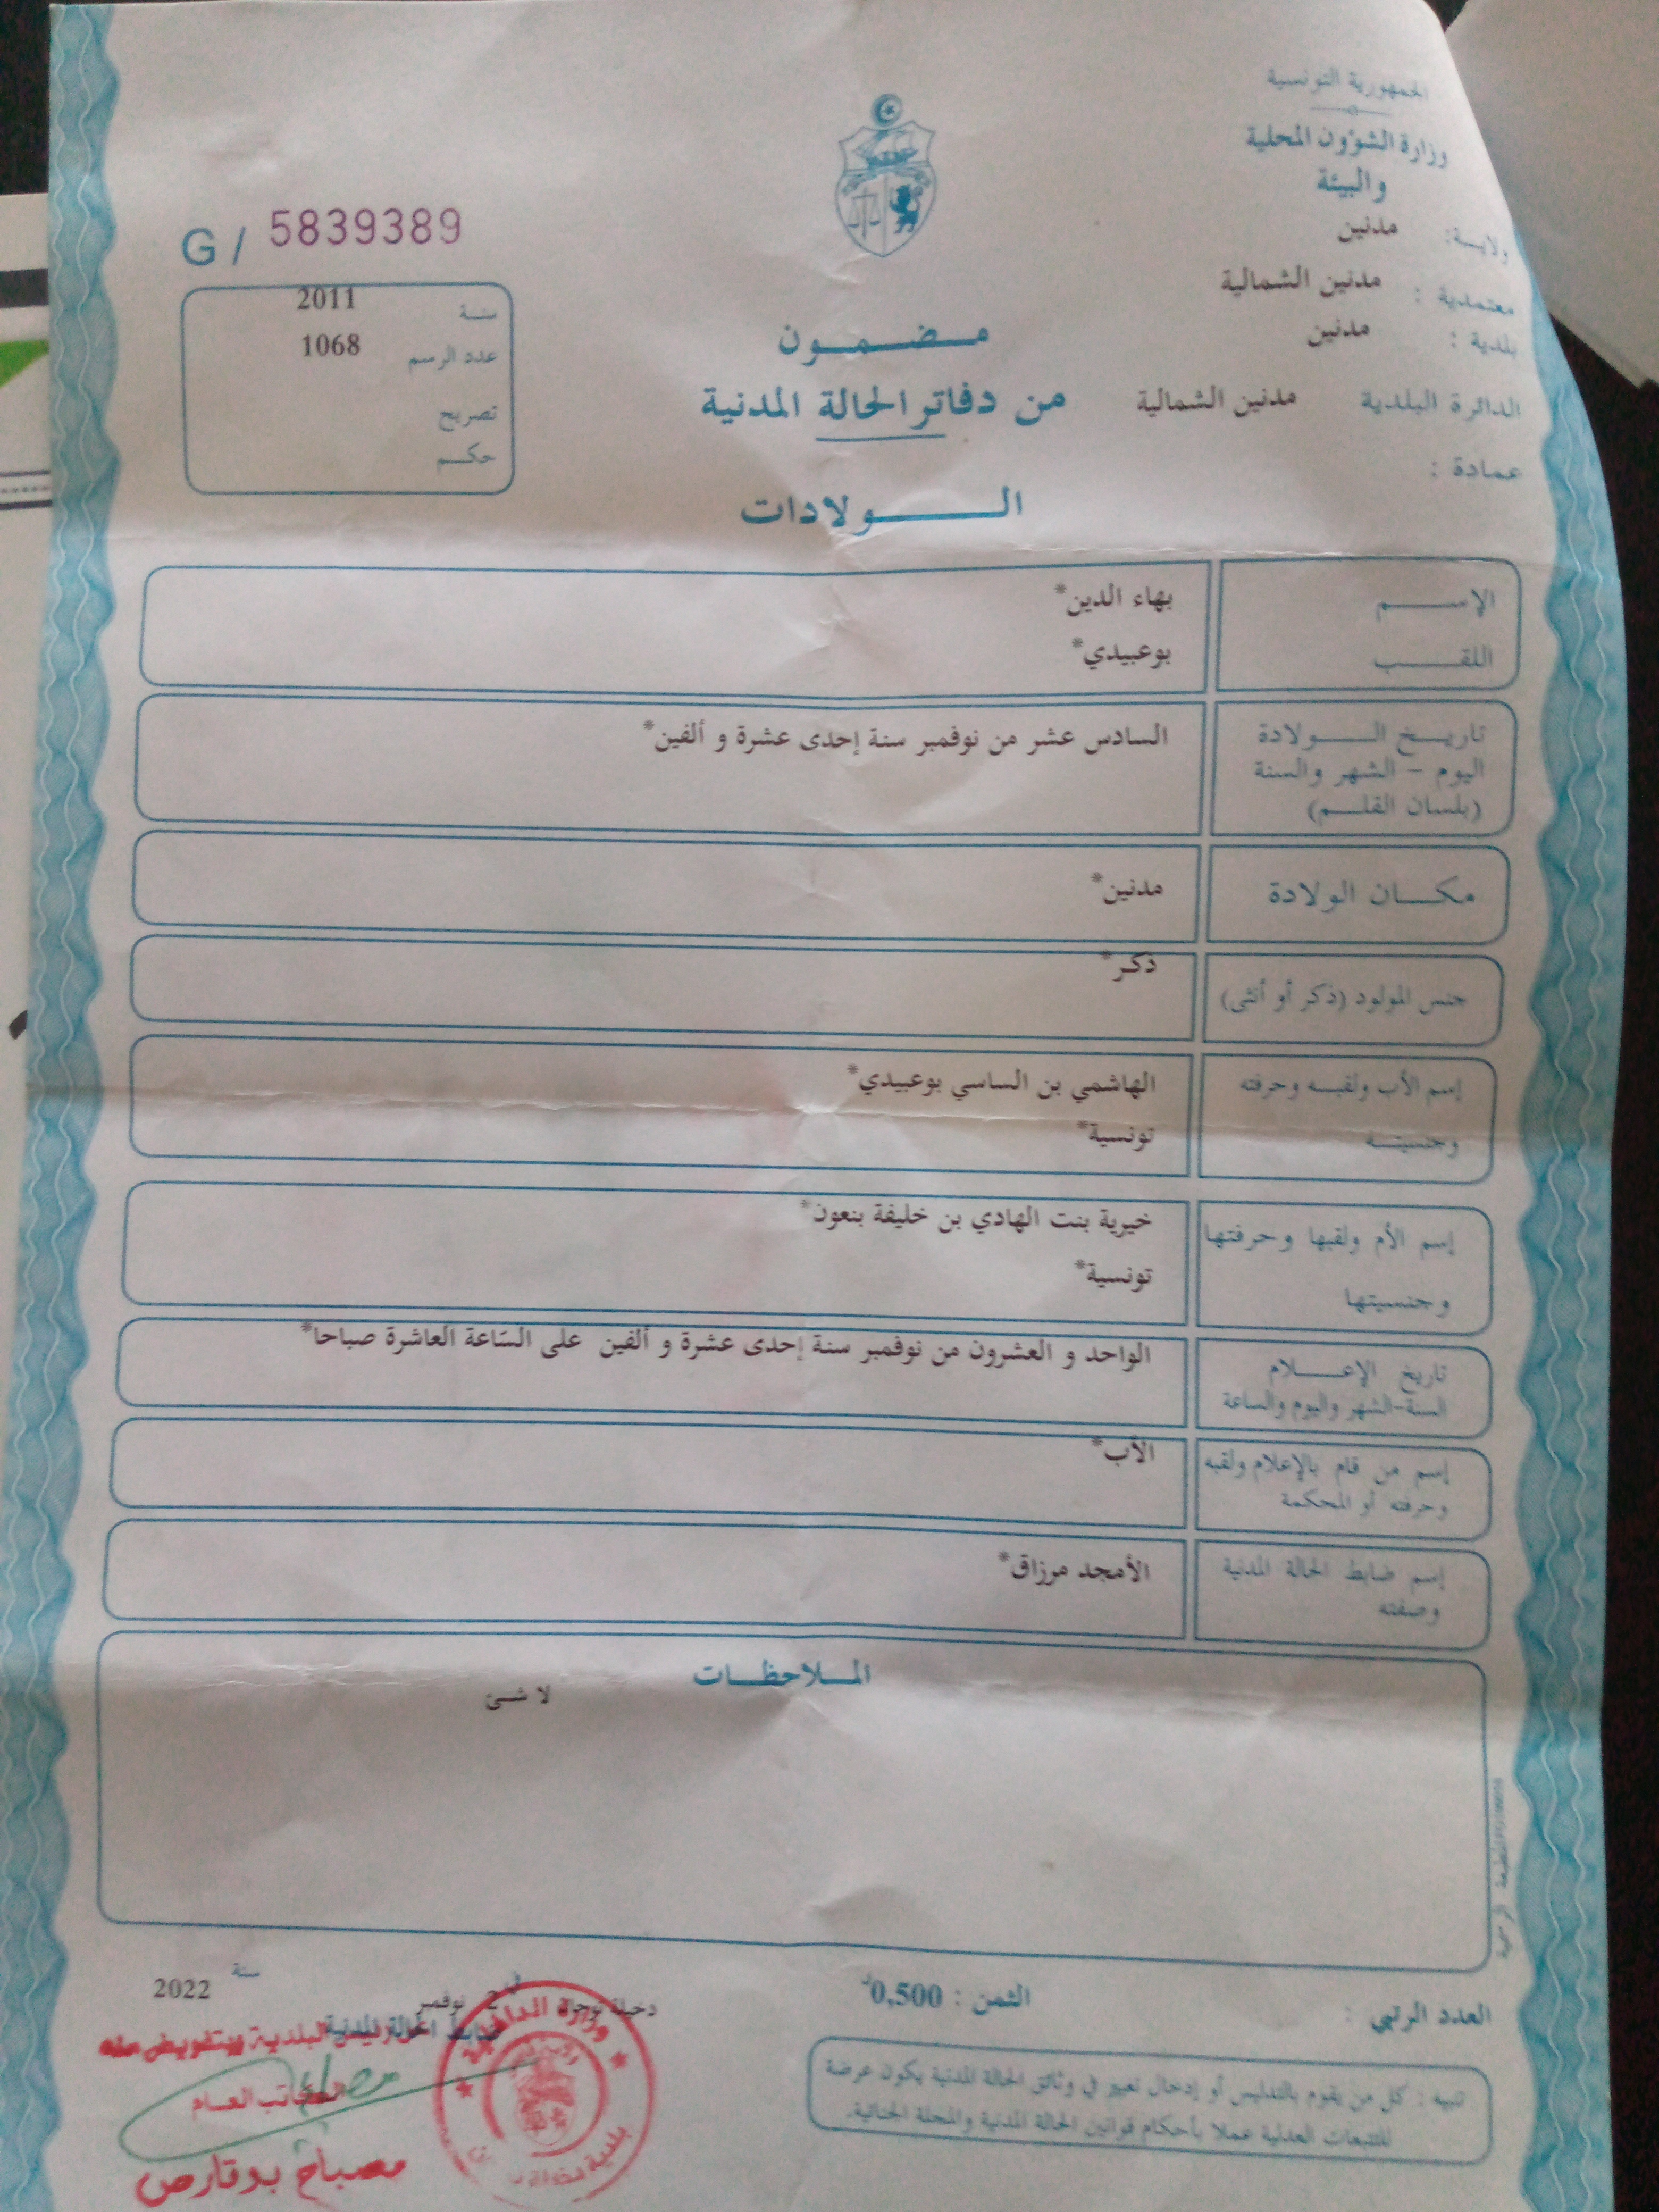 الجمهورية التونسية
وزارة الشؤون المحلية
والبيئة
ولايــة: مدنين
معتمدية : مدنين الشمالية
بلدية : مدنين
الدائرة البلدية مدنين الشمالية
عمادة :
G / 5839389
سنة 2011
عدد الرسم 1068
تصريح
حكــم
مــضــمــون
من دفاتر الحالة المدنية
الــولادات
الإســــم بهاء الدين*
اللقــــب بوعبيدي*
تاريــخ الــــولادة السادس عشر من نوفمبر سنة إحدى عشرة و ألفين*
اليوم - الشهر والسنة
(بلسان القلــم)
مكــان الولادة مدنين*
جنس المولود (ذكر أو أنثى) ذكر*
إسم الأب ولقبــه وحرفته الهاشمي بن الساسي بوعبيدي*
وجنسيتــه تونسية*
إسم الأم ولقبها وحرفتها خيرية بنت الهادي بن خليفة بنعون*
وجنسيتها تونسية*
تاريخ الإعــــلام الواحد و العشرون من نوفمبر سنة إحدى عشرة و ألفين على السّاعة العاشرة صباحا*
السنة-الشهر واليوم والساعة
إسم من قام بالإعلام ولقبه الأب*
وحرفته أو المحكمة
إسم ضابط الحالة المدنية الأمجد مرزاق*
وصفته
الملاحظــات
لا شئ
المطبعة الرسمية
العدد الرتبي :
الثمن : 0,500د
في 2 نوفمبر سنة 2022
ضابط الحالة المدنية
عن رئيس البلدية وبتفويض منه
الكاتب العام
مصباح بوقارص
وزارة الداخلية
بلدية
تنبيه : كل من يقوم بالتدليس أو إدخال تغيير في وثائق الحالة المدنية يكون عرضة
للتتبعات العدلية عملا بأحكام قوانين الحالة المدنية والمجلة الجنائية.